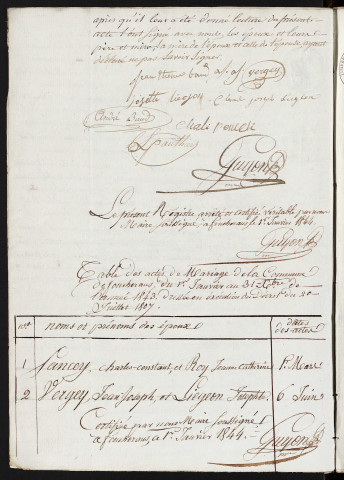 après qu'il leur a été donné lecture du présent
acte l'ont signé avec nous, les époux et leurs
père et mère, la mère de l'époux et celle de l'épouse ayant
déclaré ne pas savoir signer.
vergey
josette liegeon Charle joseph liegeon
André Baud
Guyon
Le présent Registre arrêté et certifié véritable par nous
Maire soussigné, à foucherans le 1er Janvier 1844.
Guyon
Table des actes de Mariage de la Commune
de foucherans, du 1er Janvier au 31 Xbre de
l'année 1843. dressée en exécution du décret du 20
Juillet 1807.
nos noms et prénoms des époux dates des actes
1 Lancey, charles-constant, et Roy Jeanne catherine 1er Mars
2 Vergey, Jean Joseph, et Liegeon Josephte 6 Juin
Certifiée par nous Maire soussigné
à foucherans, le 1er Janvier 1844.
Guyon